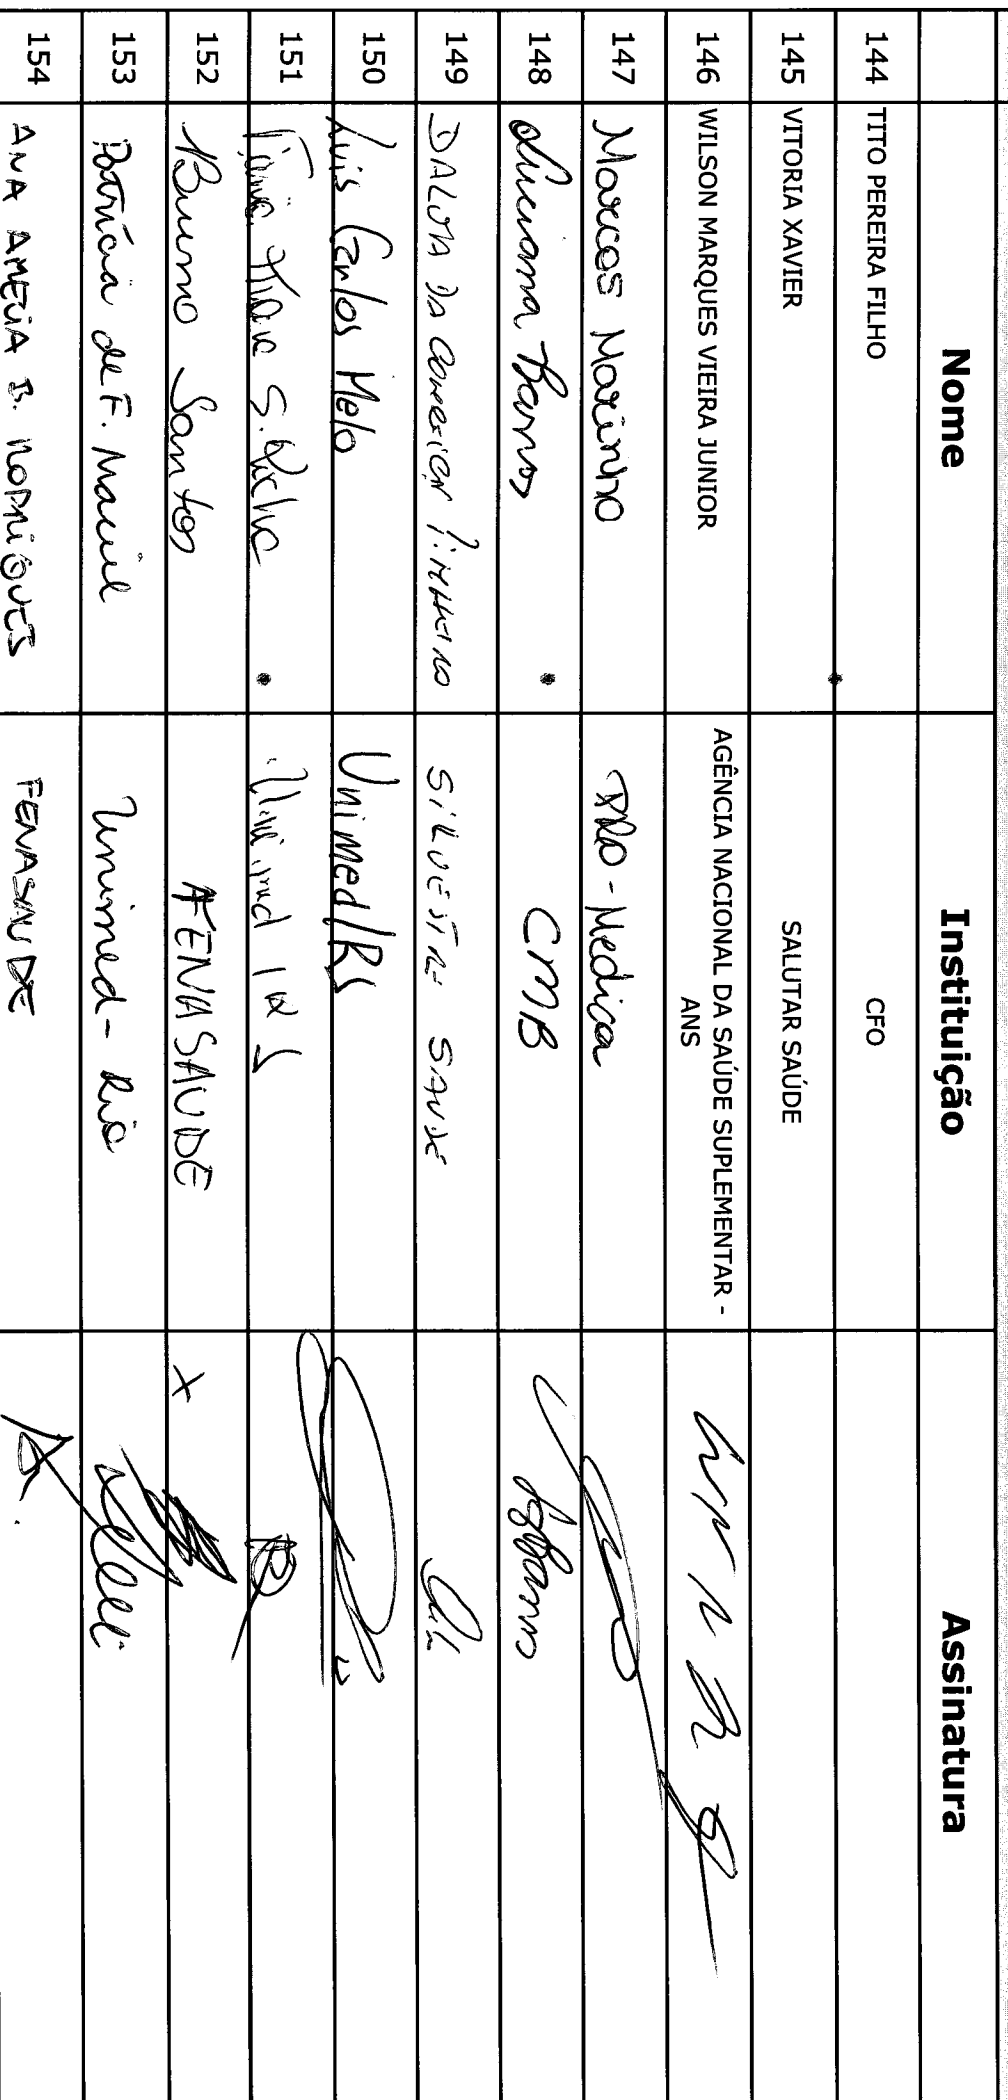 Nome Instituição Assinatura
144 TITO PEREIRA FILHO CFO
145 VITORIA XAVIER SALUTAR SAÚDE
146 WILSON MARQUES VIEIRA JUNIOR AGÊNCIA NACIONAL DA SAÚDE SUPLEMENTAR -
ANS
147 Marcos Marinho Pró-Medica
148 Luciana Barros CMB
149 DALVA DA CONCEIÇÃO PINHEIRO SILVESTRE SAUDE
150 Luis Carlos Melo Unimed/RS
151 S. Rocha Unimed / RS
152 Bruno Santos FENASAUDE
153 Patrícia de F. Unimed-Rio
154 ANA AMELIA B. RODRIGUES FENASAUDE